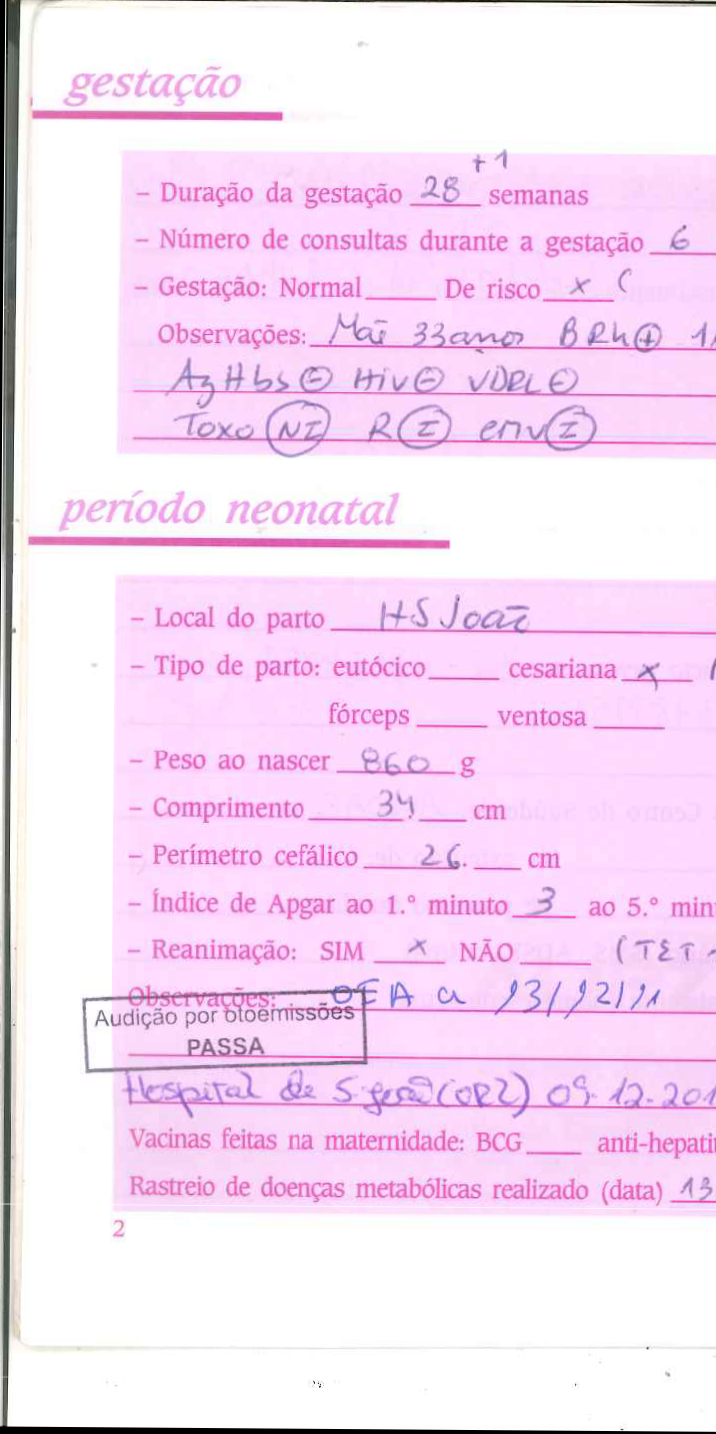 gestação
– Duração da gestação 28 +1 semanas
– Número de consultas durante a gestação 6
– Gestação: Normal____ De risco x (
Observações: Mãe 33 anos B Rh⊕
Ag Hbs ⊖ Hiv ⊖ VDRL ⊖
Toxo NI R I cmv I
período neonatal
– Local do parto HS João
– Tipo de parto: eutócico____ cesariana x
fórceps ____ ventosa ____
– Peso ao nascer 860 g
– Comprimento 34 cm
– Perímetro cefálico 26. cm
– Índice de Apgar ao 1.º minuto 3 ao 5.º min
– Reanimação: SIM x NÃO ____ (TET
Observações: OEA a
Audição por otoemissões
PASSA
Hospital de S. João (ORL) 09.12.201
Vacinas feitas na maternidade: BCG____ anti-hepati
Rastreio de doenças metabólicas realizado (data) 13
2